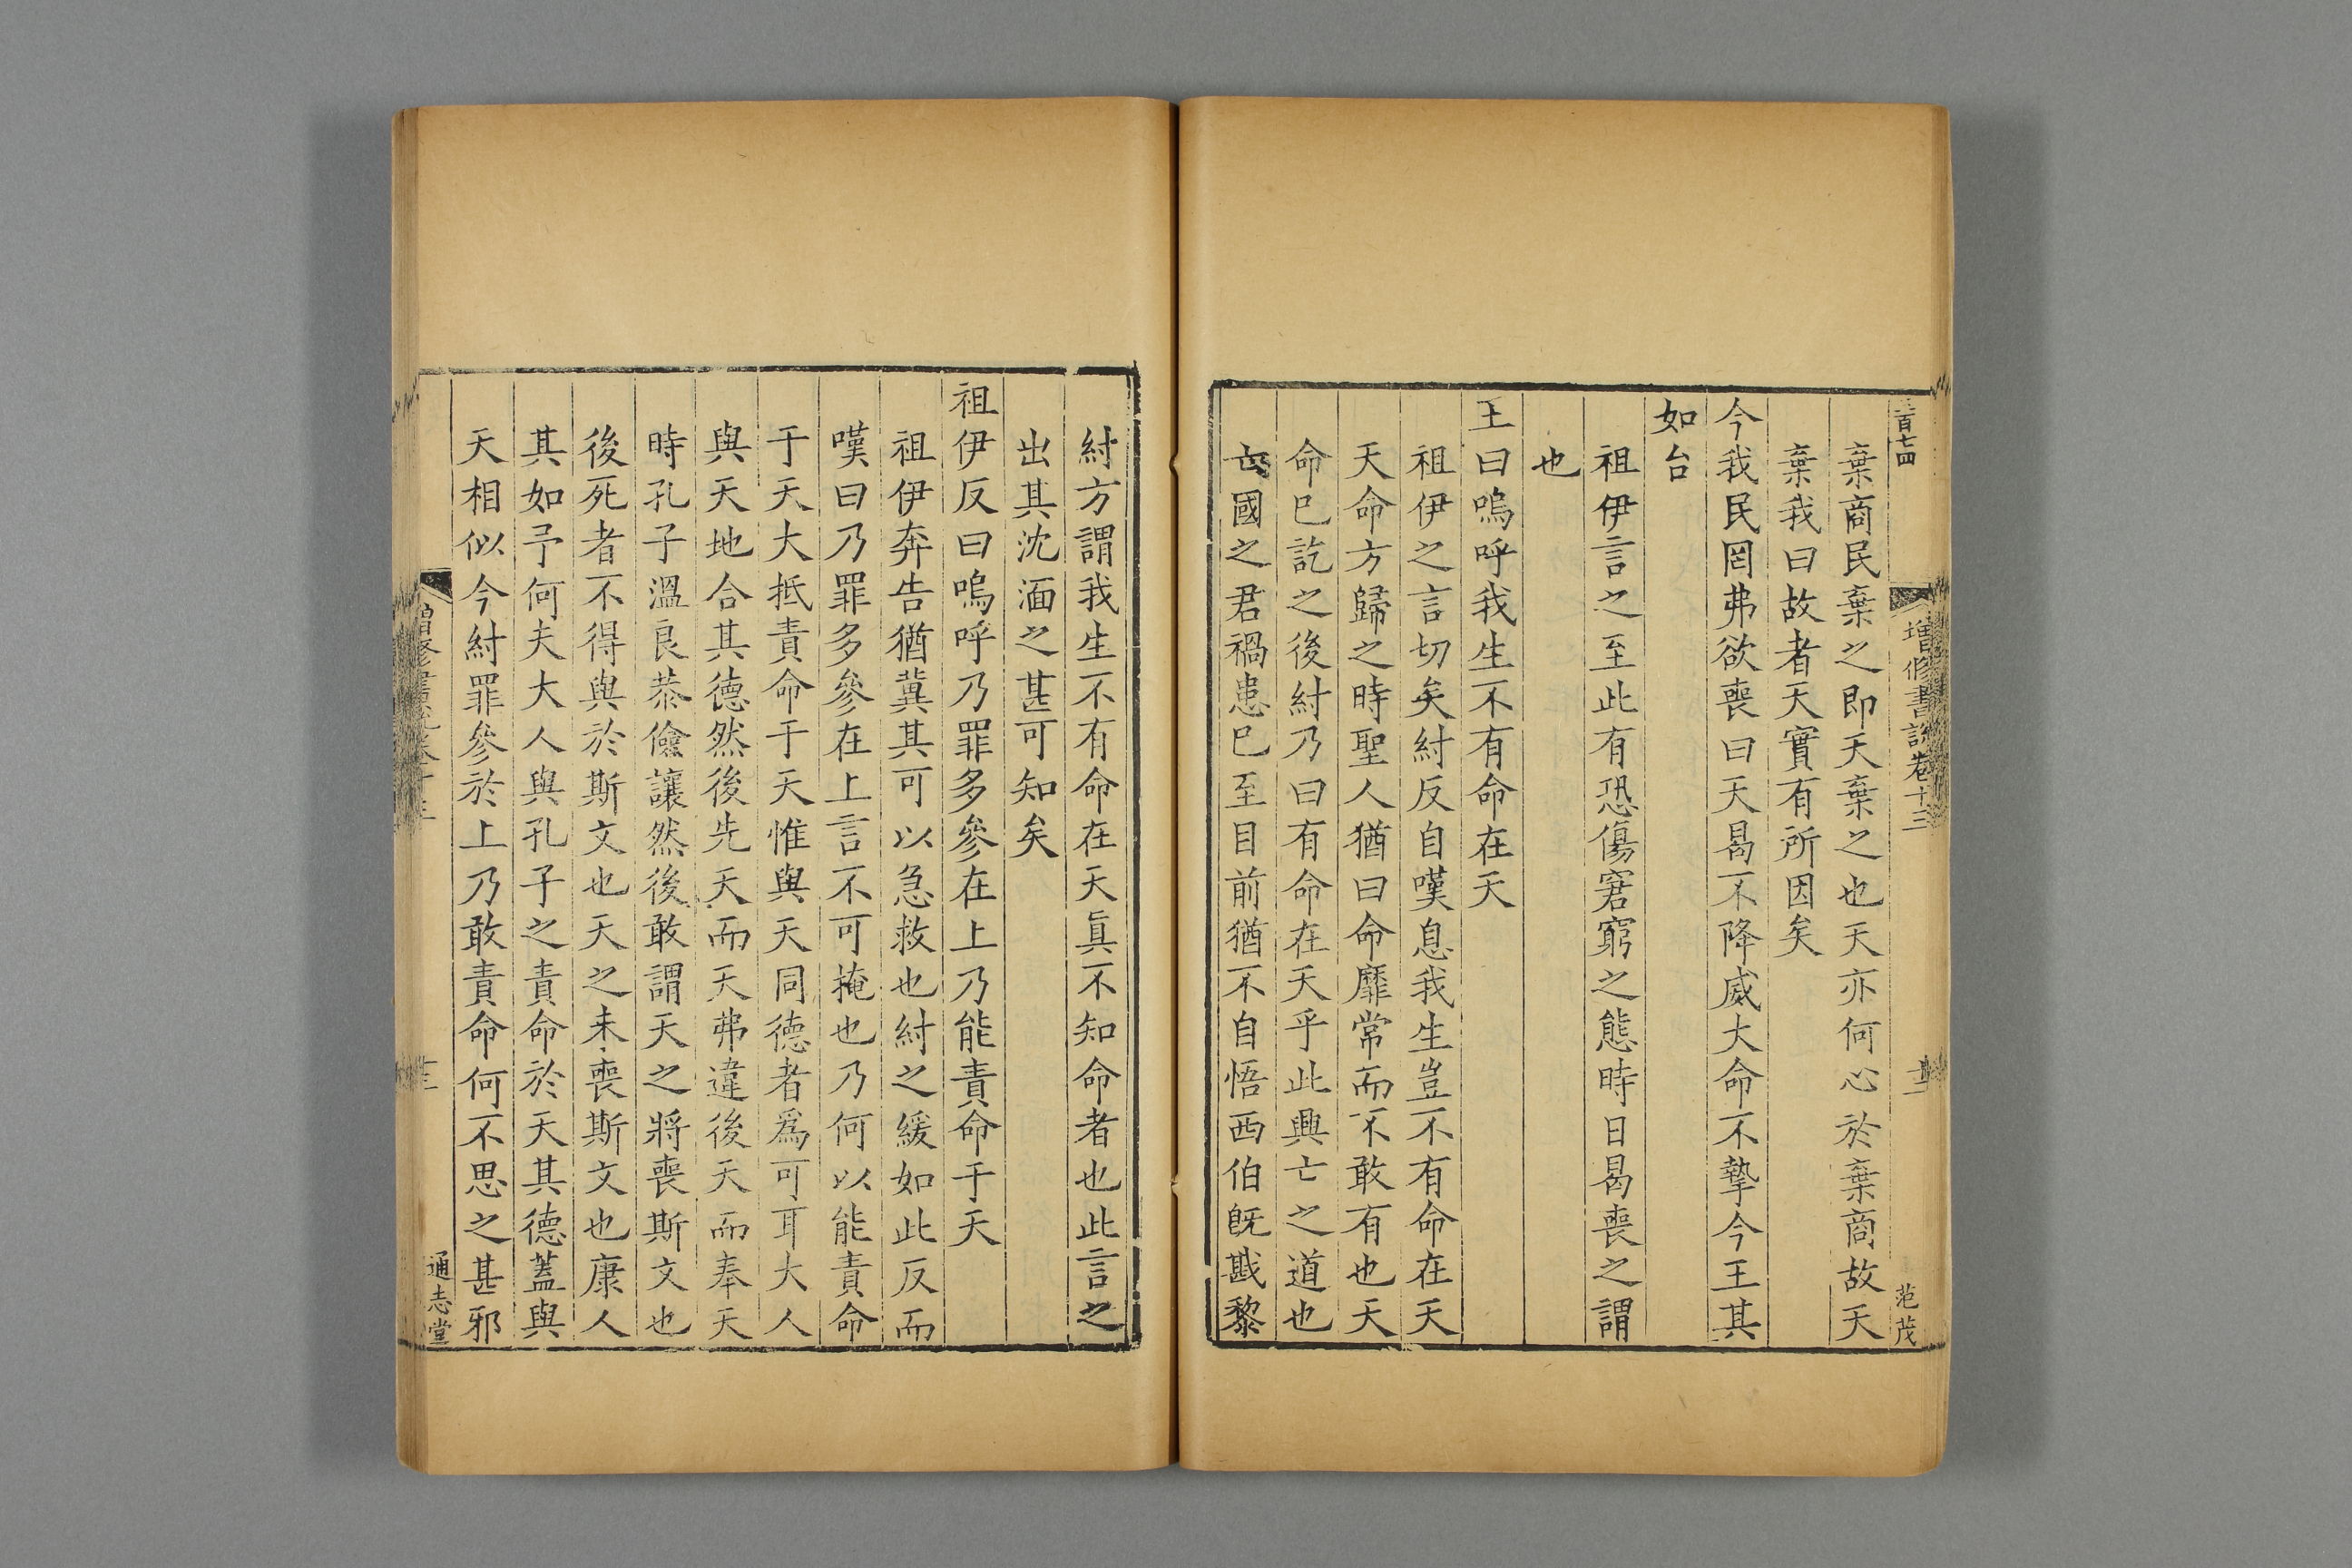 百七四
增修書説卷十三
范茂
棄商民棄之即天棄之也天亦何心於棄商故天
棄我曰故者天實有所因矣
今我民罔弗欲喪曰天曷不降威大命不摯今王其
如台
祖伊言之至此有恐傷窘窮之態時日曷喪之謂
也
王曰嗚呼我生不有命在天
祖伊之言切矣紂反自嘆息我生豈不有命在天
天命方歸之時聖人猶曰命靡常而不敢有也天
命已訖之後紂乃曰有命在天乎此興亡之道也
亡國之君禍患已至目前猶不自悟西伯旣戡黎
紂方謂我生不有命在天眞不知命者也此言之
出其沈湎之甚可知矣
祖伊反曰嗚呼乃罪多參在上乃能責命于天
祖伊奔告猶冀其可以急救也紂之緩如此反而
嘆曰乃罪多參在上言不可掩也乃何以能責命
于天大抵責命于天惟與天同德者爲可耳大人
與天地合其德然後先天而天弗違後天而奉天
時孔子溫良恭儉讓然後敢謂天之將喪斯文也
後死者不得與於斯文也天之未喪斯文也康人
其如予何夫大人與孔子之責命於天其德蓋與
天相似今紂罪參於上乃敢責命何不思之甚邪
增修書説卷十三
十三
通志堂